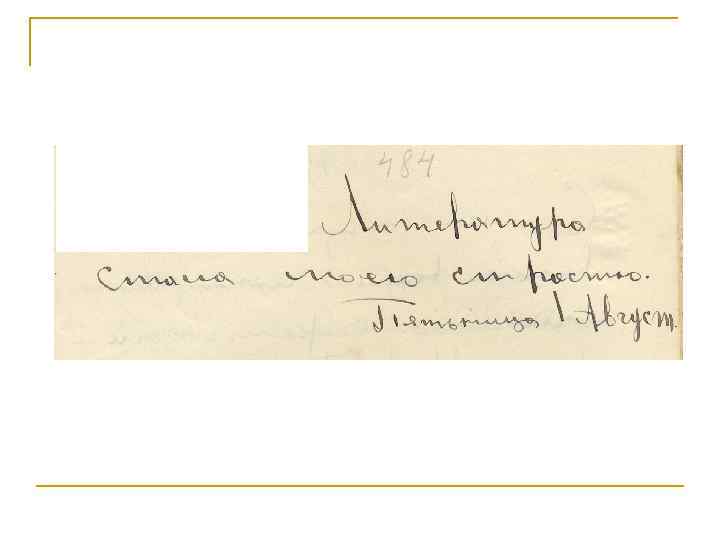 484
Литература
стала моею страстью.
Пятьница 1 Август.